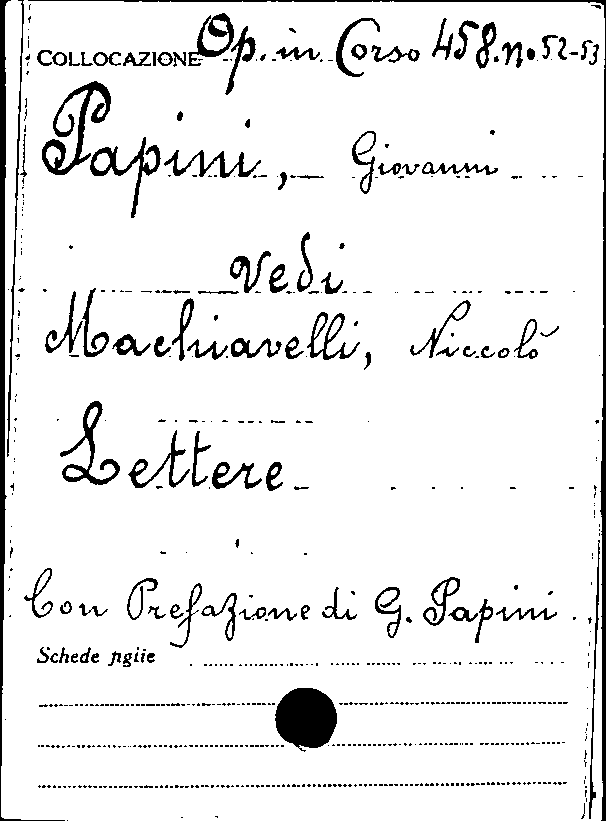 COLLOCAZIONE Op. in Corso 458. n. 52-53
Papini, Giovanni
vedi
Machiavelli, Niccolò
Lettere
Con Prefazione di G. Papini
Schede pglie